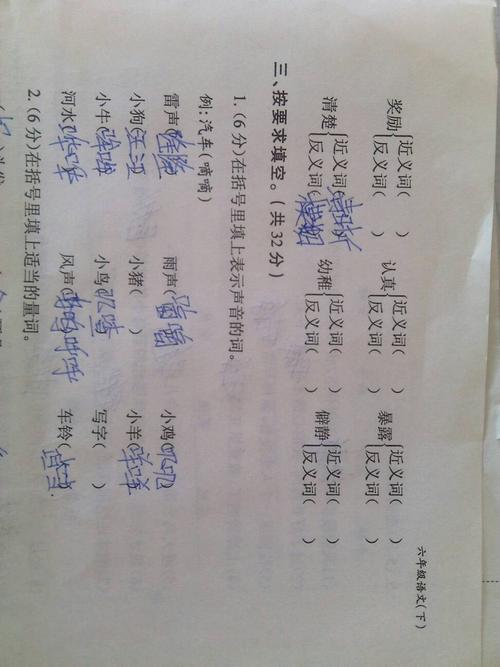 六年级语文(下)
奖励{近义词( ) 认真{近义词( ) 暴露{近义词( )
反义词( ) 反义词( ) 反义词( )
清楚{近义词(清晰) 幼稚{近义词( ) 僻静{近义词( )
反义词(模糊) 反义词( ) 反义词( )
三、按要求填空。(共32分)
1.(6分)在括号里填上表示声音的词。
例:汽车(嘀嘀)
雷声(隆隆) 雨声( 小鸡(叽叽)
小狗(汪汪) 小猪( ) 小羊(咩咩)
小牛( 小鸟( 写字( )
河水(哗哗 风声(呼呼 车铃(
2.(6分)在括号里填上适当的量词。